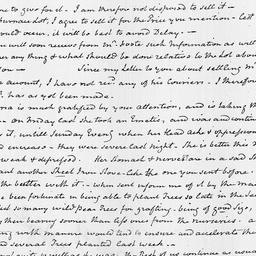 me to give for it - I am therefore not disposed to sell it -
I agree to sell it for the Price you mention -
would occur, it will be best to avoid delay. -
you will soon receive from Mr. Foote such Information as will
or any thing & what should be done relative to the Lot about
- Since my Letter to you about selling
amount, I have not rec'd any of his Couriers. I therefore
has as yet been made.
is much gratified by your attention, and is taking the
- On Friday last She took an Emetic, and was
it, until Sunday Even'g when her Head Ache & oppression
increase - they were severe last night. She is better this
weak & depressed. Her Stomach & nerves are in a sad
want another Sheet Iron Stove like the one you sent before.
the better with it - when sent inform me of it by the mail
been fortunate in being able to plant Trees so late in the
so many wild Pear Trees for grafting - being of good Size,
their bearing sooner than less ones from the nurseries -
with manure would tend to ensure and accelerate
several Trees planted last week -
as well as he was the Rest of us continue as usual